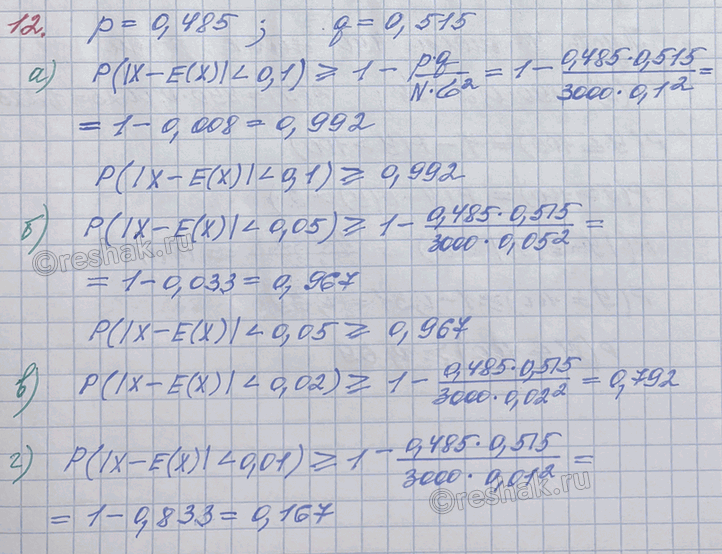 12. p = 0,485 ; q = 0,515
а) P(|X − E(X)| < 0,1) ⩾ 1 − p·q / N·б² = 1 − 0,485·0,515 / 3000·0,1² =
= 1 − 0,008 = 0,992
P(|X − E(X)| < 0,1) ⩾ 0,992
б) P(|X − E(X)| < 0,05) ⩾ 1 − 0,485·0,515 / 3000·0,05² =
= 1 − 0,033 = 0,967
P(|X − E(X)| < 0,05 ⩾ 0,967
в) P(|X − E(X)| < 0,02) ⩾ 1 − 0,485·0,515 / 3000·0,02² = 0,792
г) P(|X − E(X)| < 0,01) ⩾ 1 − 0,485·0,515 / 3000·0,01² =
= 1 − 0,833 = 0,167
©reshak.ru
©reshak.ru